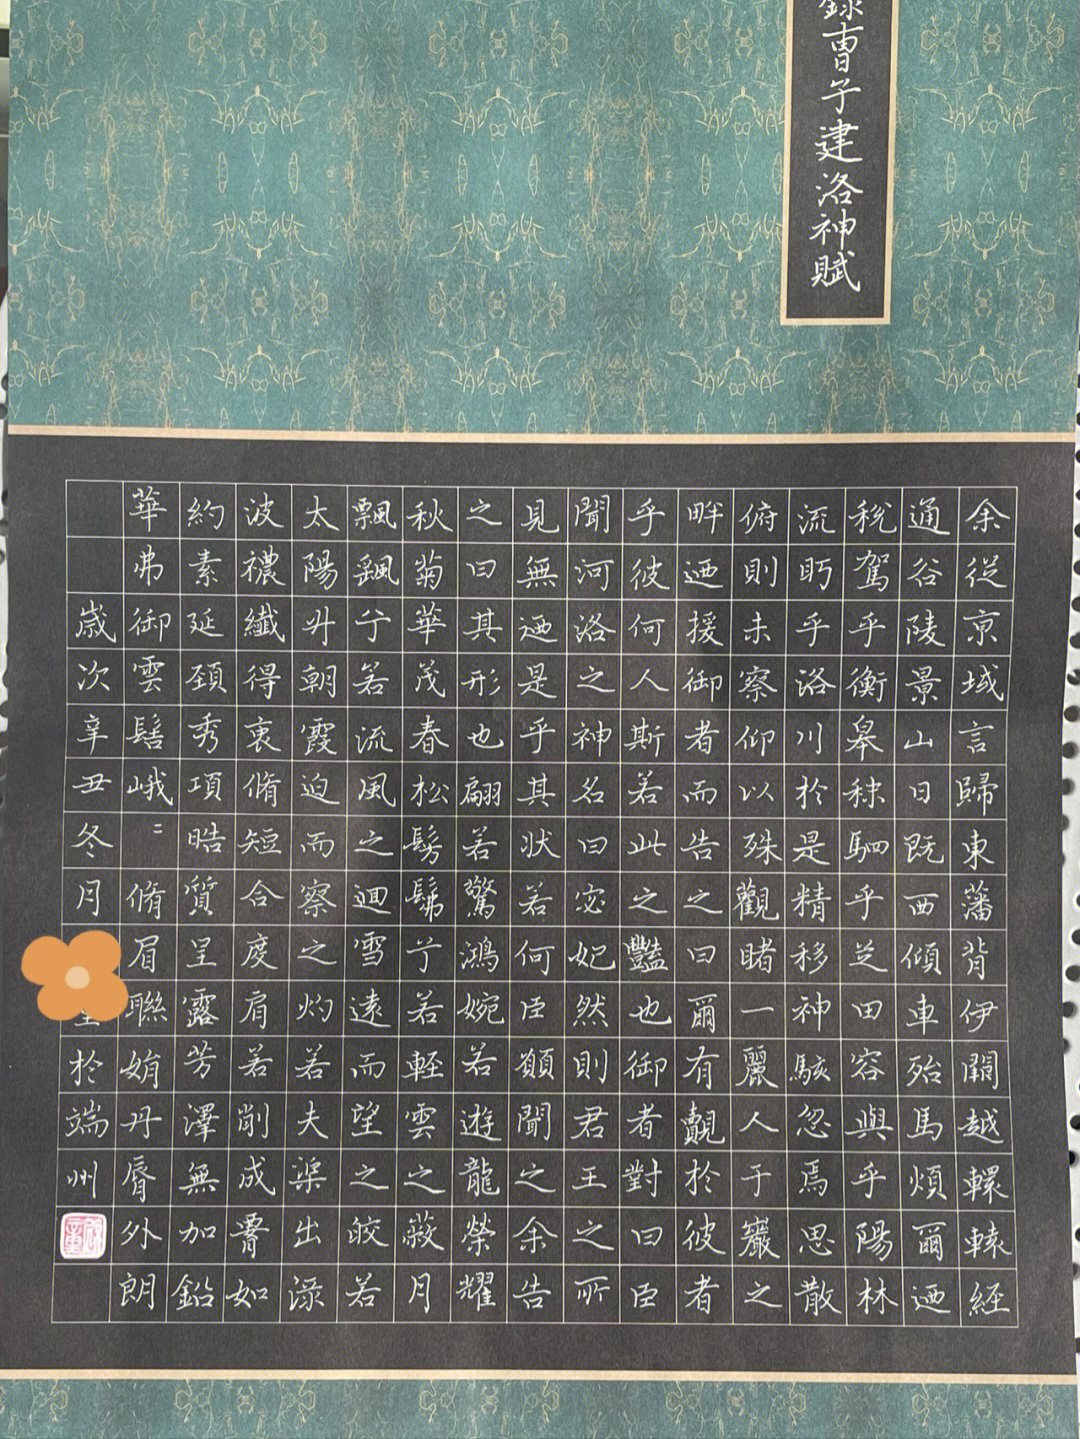 錄曹子建洛神賦
余從京域言歸東藩背伊闕越轘轅經
通谷陵景山日既西傾車殆馬煩爾迺
稅駕乎衡皋秣駟乎芝田容與乎陽林
流眄乎洛川於是精移神駭忽焉思散
俯則未察仰以殊觀睹一麗人于巖之
畔迺援御者而告之曰爾有覿於彼者
乎彼何人斯若此之豔也御者對曰臣
聞河洛之神名曰宓妃然則君王之所
見無迺是乎其狀若何臣願聞之余告
之曰其形也翩若驚鴻婉若遊龍榮耀
秋菊華茂春松髣髴兮若輕雲之蔽月
飄颻兮若流風之迴雪遠而望之皎若
太陽升朝霞迫而察之灼若夫渠出淥
波襛纖得衷脩短合度肩若削成腰如
約素延頸秀項晧質呈露芳澤無加鉛
華弗御雲髻峨〻脩眉聯娟丹脣外朗
歲次辛丑冬月於端州